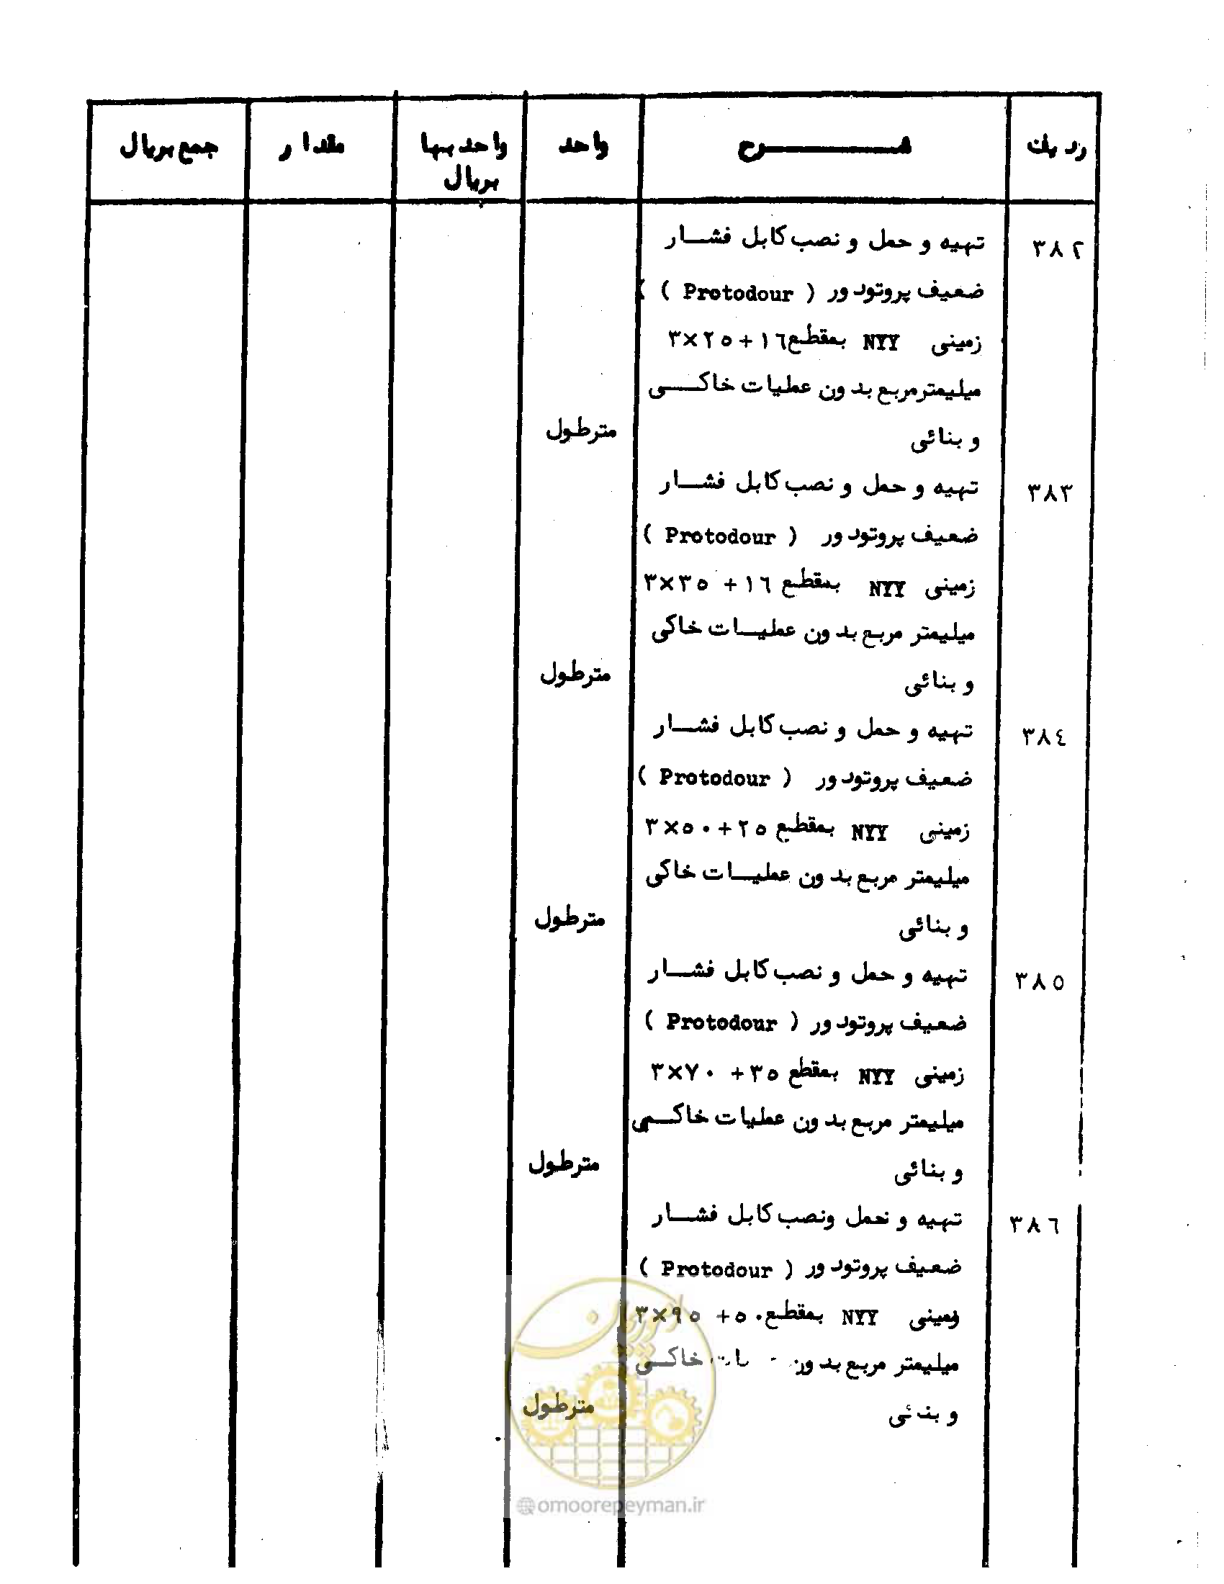 ردیف شـــــــــرح واحد واحد بها بریال مقدار جمع بریال
۳۸۲ تهیه و حمل و نصب کابل فشـــار
ضعیف پروتودور ( Protodour ) )
زمینی NYY بمقطع ۱۶+۳×۲۵
میلیمترمربع بدون عملیات خاکـــی
و بنائی مترطول
۳۸۳ تهیه و حمل و نصب کابل فشـــار
ضعیف پروتودور ( Protodour )
زمینی NYY بمقطع ۱۶+ ۳×۳۵
میلیمتر مربع بدون عملیـــات خاکی
و بنائی مترطول
۳۸٤ تهیه و حمل و نصب کابل فشـــار
ضعیف پروتودور ( Protodour )
زمینی NYY بمقطع ۲۵+۳×۵۰
میلیمتر مربع بدون عملیـــات خاکی
و بنائی مترطول
۳۸۵ تهیه و حمل و نصب کابل فشـــار
ضعیف پروتودور ( Protodour )
زمینی NYY بمقطع ۳۵+ ۳×۷۰
میلیمتر مربع بدون عملیات خاکـــی
و بنائی مترطول
۳۸۶ تهیه و حمل ونصب کابل فشـــار
ضعیف پروتودور ( Protodour )
زمینی NYY بمقطع ۵۰+ ۳×۹۵
میلیمتر مربع بدون خاکـــی
و بنائی مترطول
امورپیمان
@omoorepeyman.ir